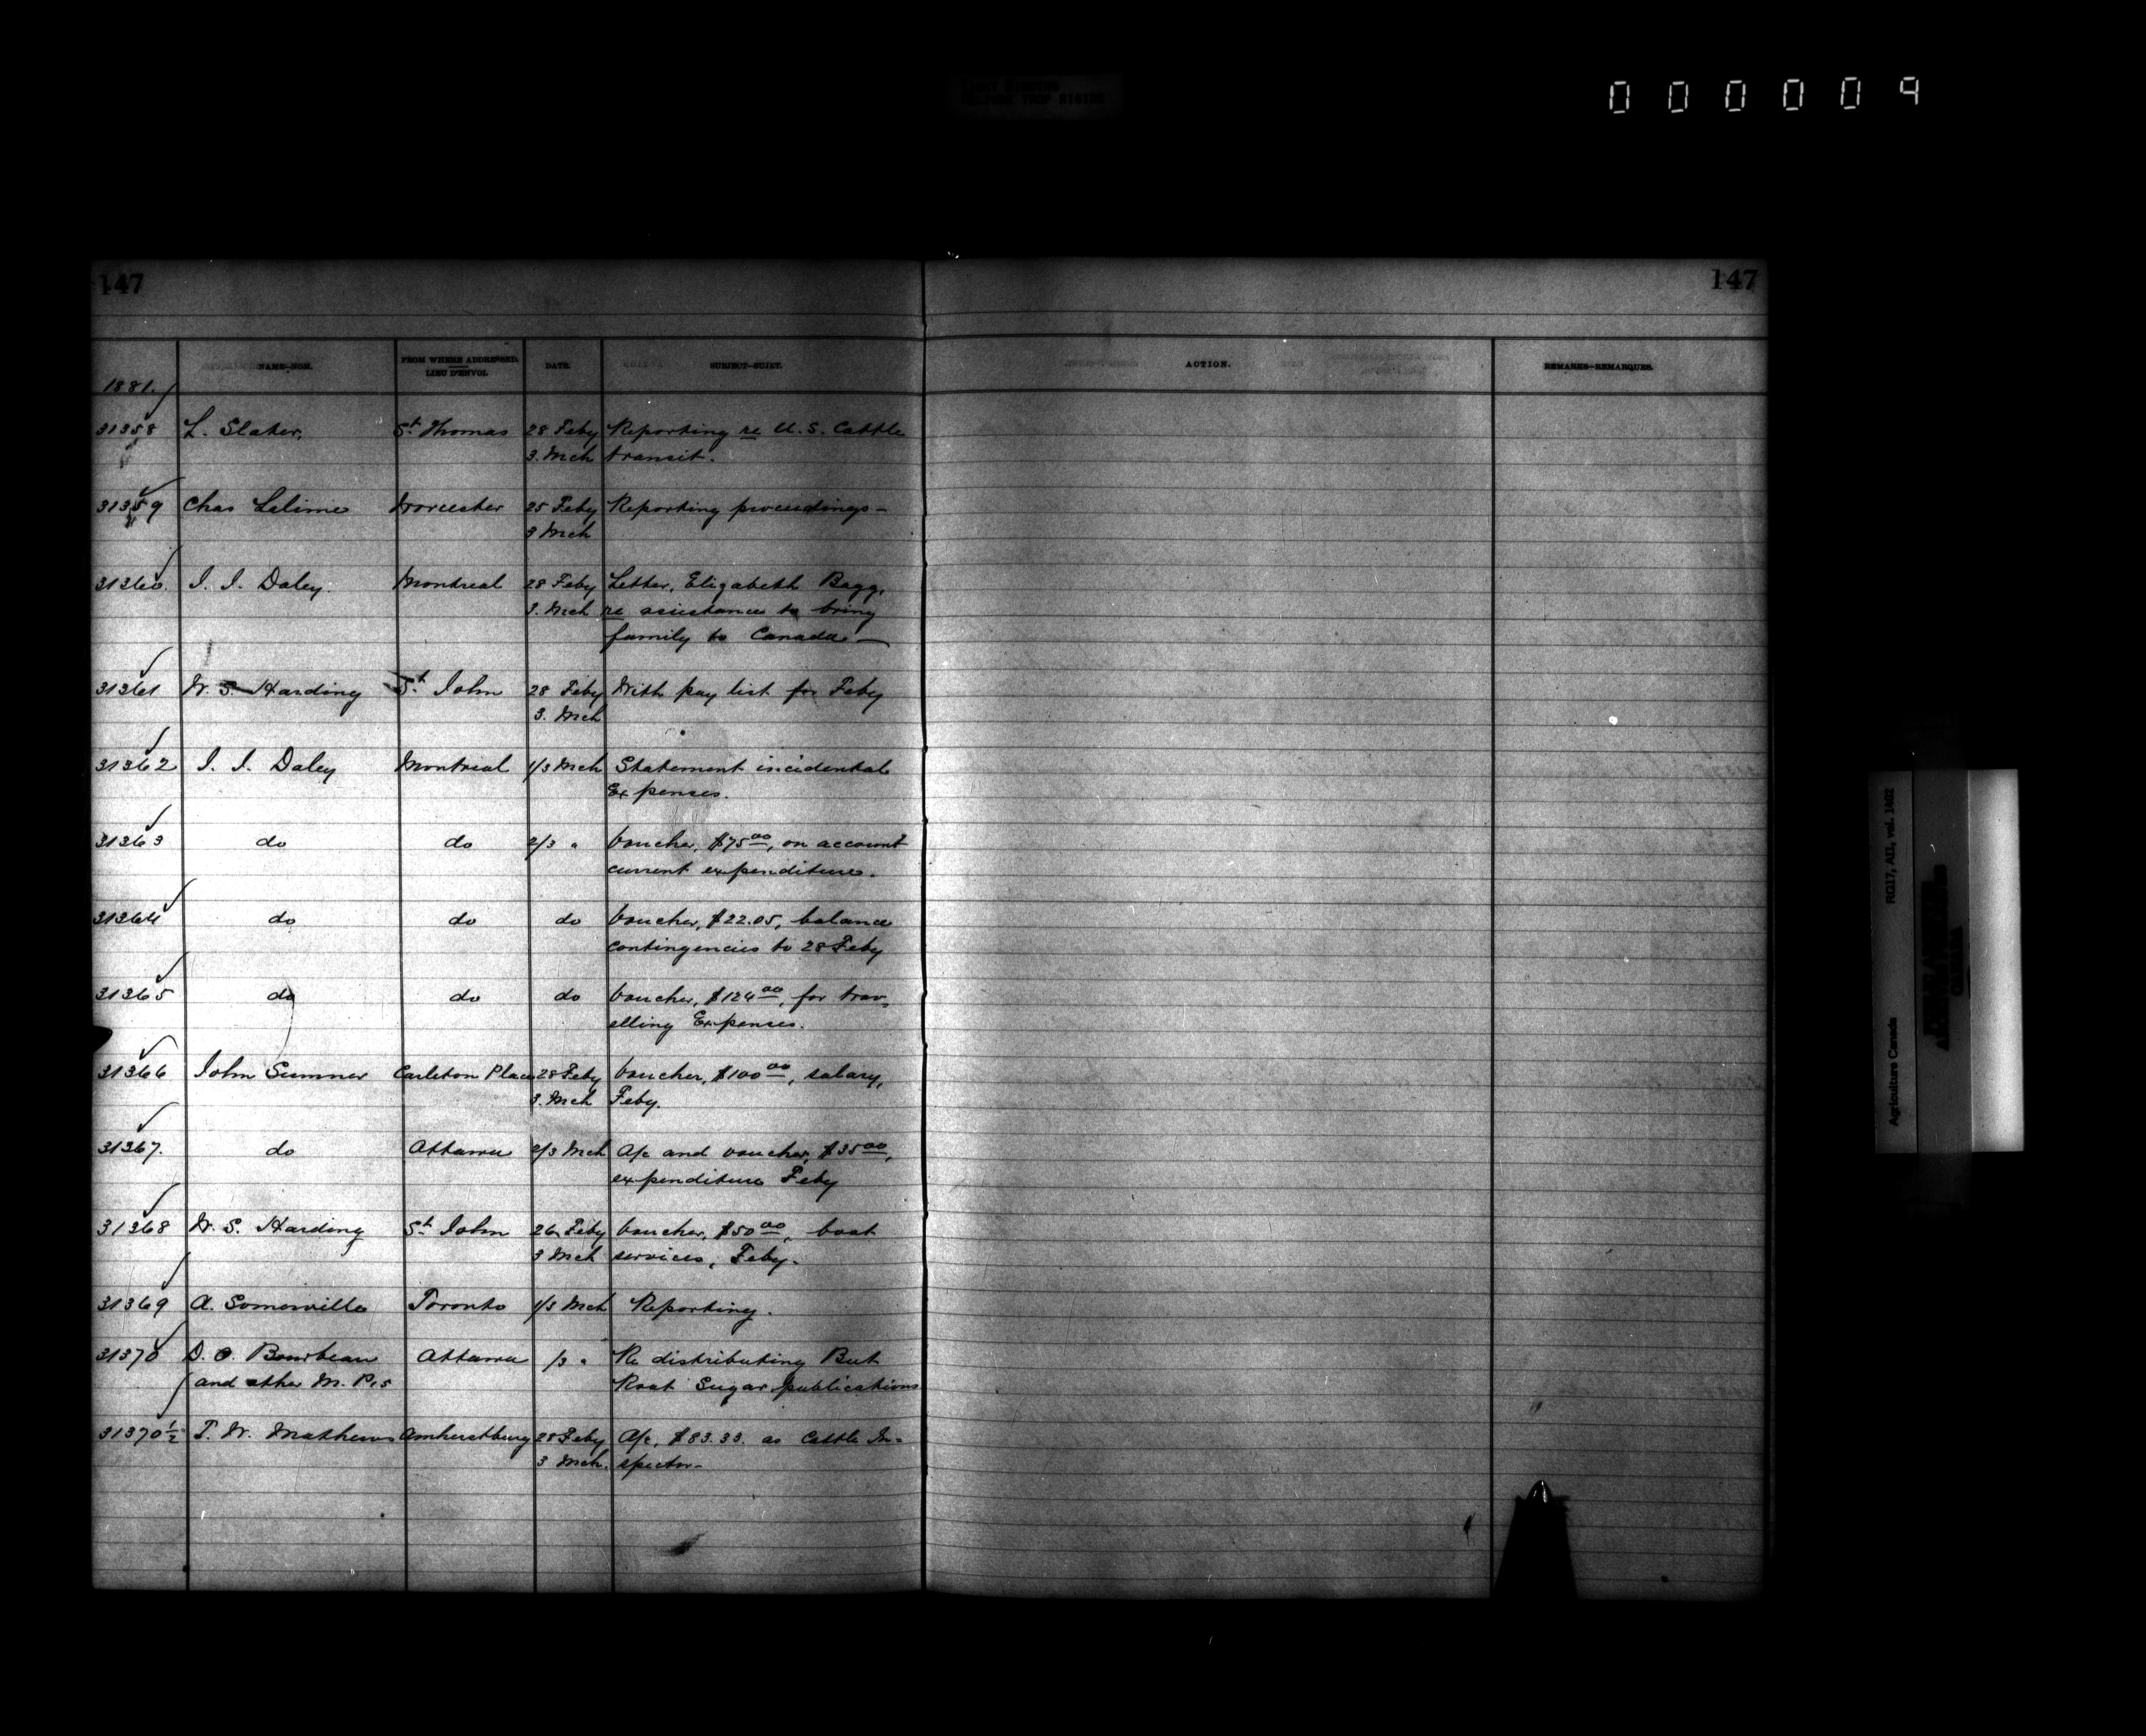 000009
147
147
NAME–NOM.
FROM WHERE ADDRESSED.
LIEU D'ENVOI.
DATE.
SUBJECT–SUJET.
ACTION.
REMARKS–REMARQUES.
1881.
31358 L. Slater, St Thomas 28 Feby Reporting re U.S. Cattle
3. Mch transit.
31359 Chas Lalime Worcester 25 Feby Reporting proceedings –
3 Mch
31360. J. J. Daley. Montreal 28 Feby Letter, Elizabeth Bagg,
3. Mch re assistance to bring
family to Canada –
31361 W. S. Harding St John 28 Feby With pay list for Feby
3. Mch
31362 J. J. Daley Montreal 1/3 Mch Statement incidental
Expenses.
31363 do do 2/3 " Voucher, $75 00, on account
current expenditure.
31364 do do do Voucher, $22.05, balance
contingencies to 28 Feby
31365 do do do Voucher, $124 00, for trav-
elling Expenses.
31366 John Sumner Carleton Place 28 Feby Voucher, $100 00, salary,
3. Mch Feby.
31367. do Ottawa 2/3 Mch A/c and voucher, $35 00,
expenditure Feby
31368 W. S. Harding St John 26 Feby Voucher, $50 00, boat
3 Mch services, Feby.
31369 A. Somerville Toronto 1/3 Mch Reporting.
31370 D. O. Bourbeau Ottawa /3 " Re distributing Beet
and other M.P.s Root Sugar publications
31370½ T. W. Mathews Amherstburg 28 Feby A/c, $83.33. as Cattle In-
3 Mch. spector–
Agriculture Canada RG17, AII, vol. 1402